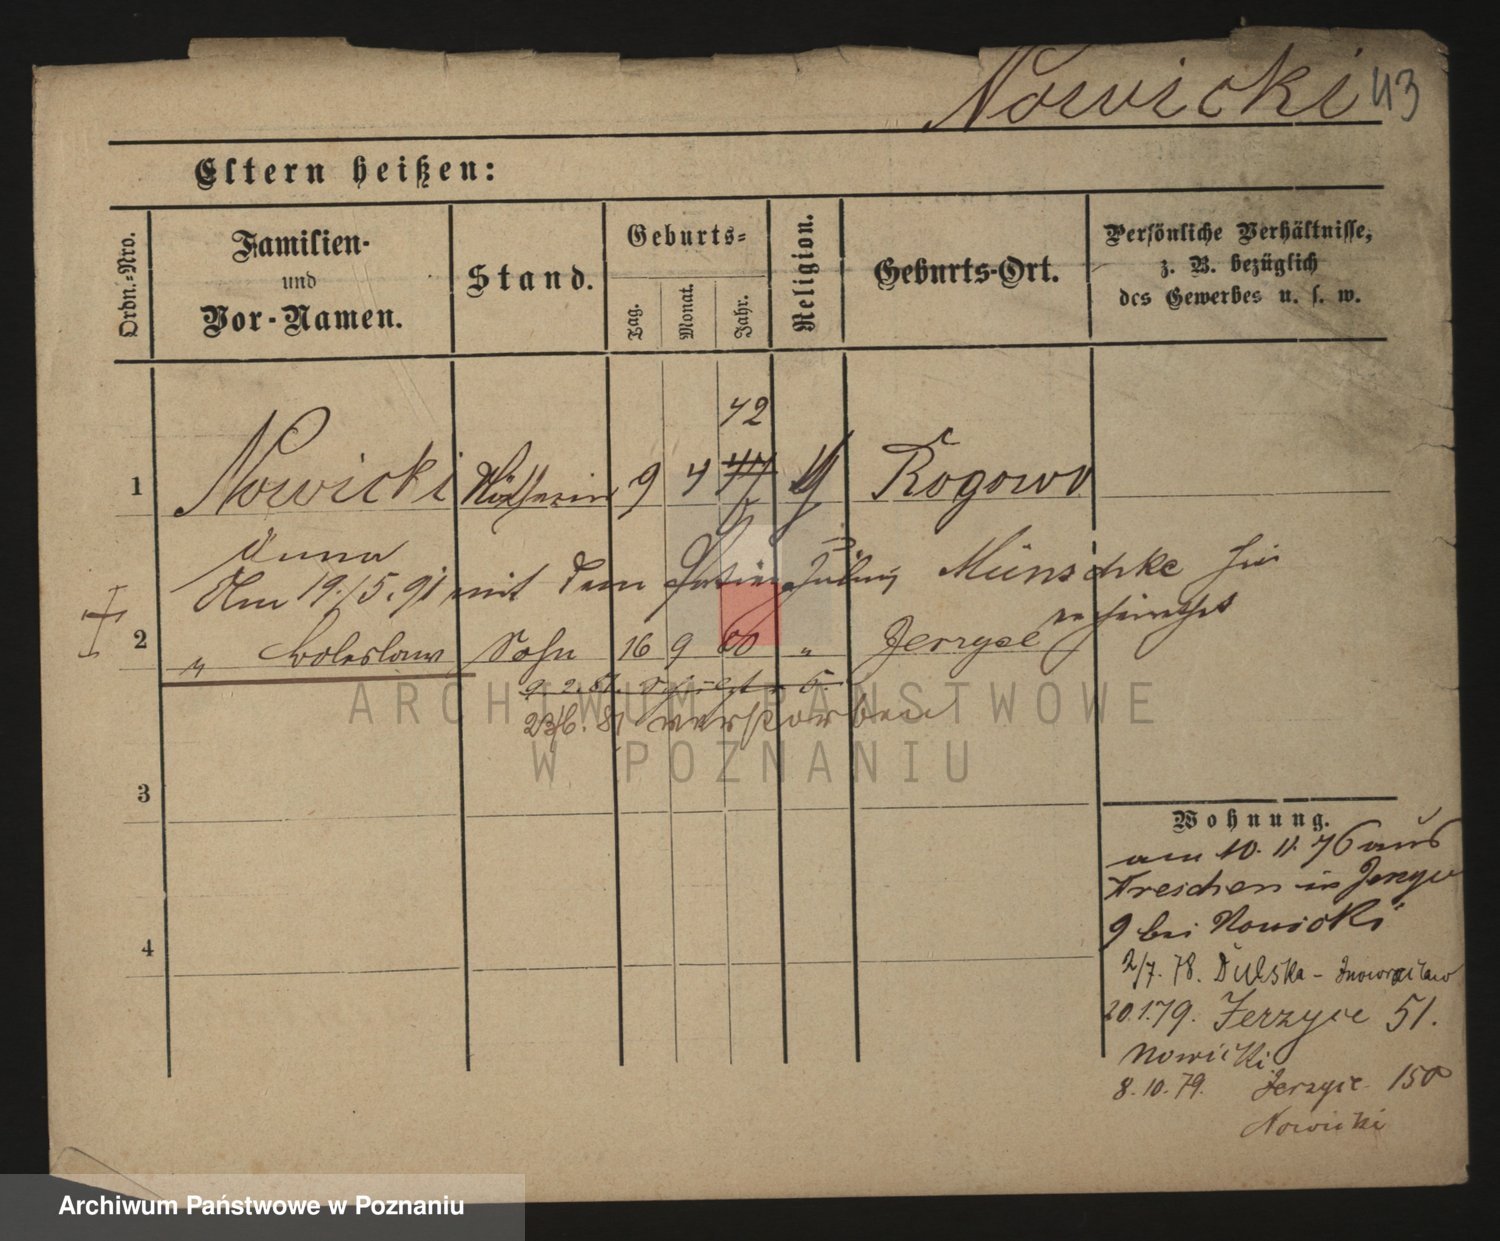 Nowicki 43
Eltern heißen:
Ordn.-Nro.
Familien-
und
Vor-Namen.
Stand.
Geburts-
Tag.
Monat.
Jahr.
Religion.
Geburts-Ort.
Persönliche Verhältnisse,
z. B. bezüglich
des Gewerbes u. s. w.
42
1 Nowicki 9 4 Rogowo
Anna
Am 19./5.91 mit dem Münschke
verheirathet
2 " Boleslaw Sohn 16 9 80 " Jerzyce
23/6. 81 verstorben
3
4
Wohnung.
am 10. 11. 76 aus
Wreschen in Jerzyce
9 bei Nowicki
2/7. 78. Dulska - Inowraclaw
20.1.79. Jerzyce 51.
Nowicki
8. 10. 79. Jerzyce 150
Nowicki
ARCHIWUM PAŃSTWOWE
W POZNANIU
Archiwum Państwowe w Poznaniu